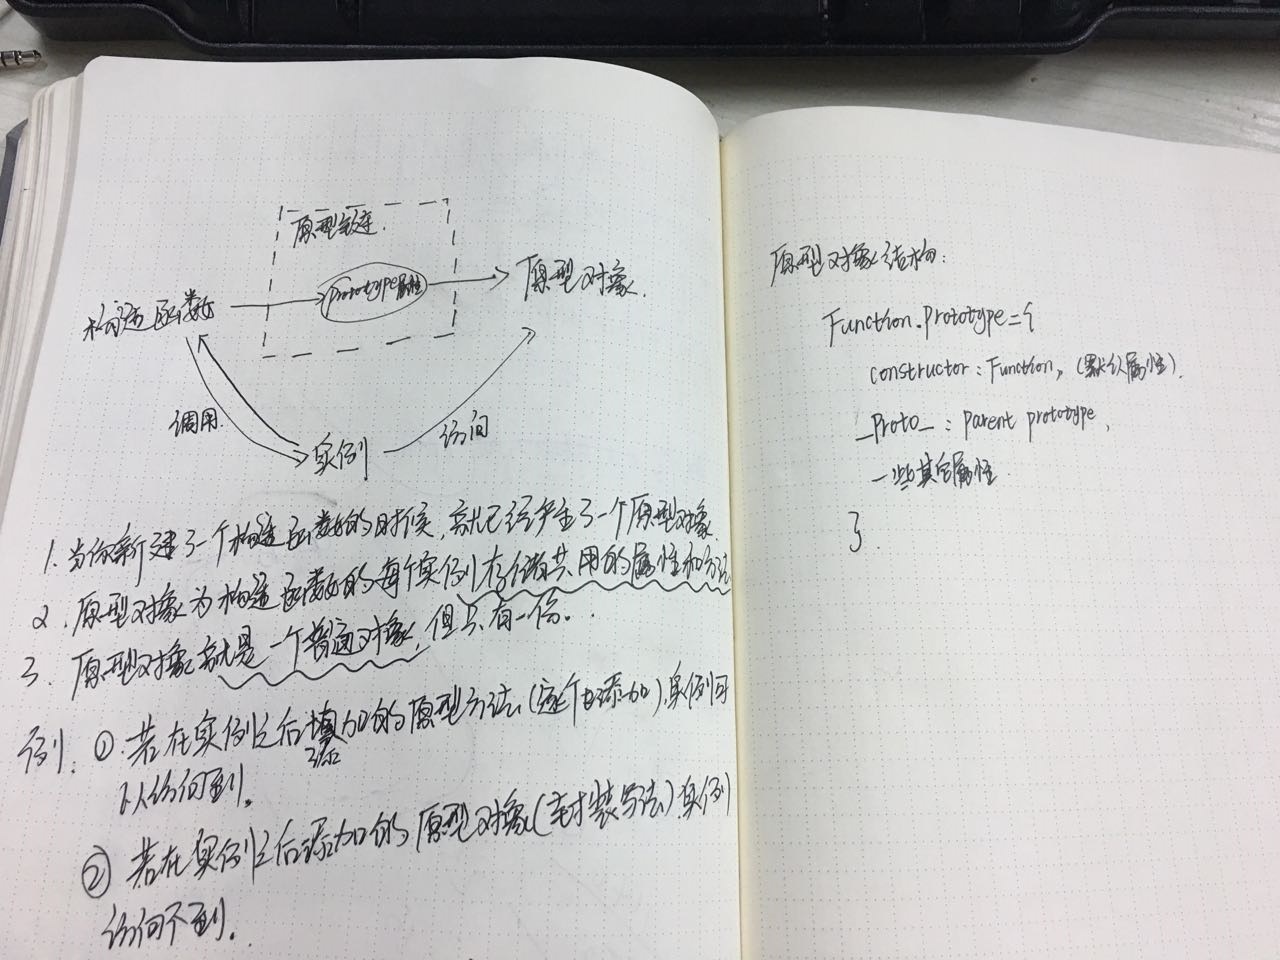 原型链
构造函数
prototype属性
原型对象
调用
实例
访问
1. 当你新建了一个构造函数的时候，就已经产生了一个原型对象
2. 原型对象为构造函数的每个实例存储共用的属性和方法
3. 原型对象就是一个普通对象，但只有一份。
例：① 若在实例之后填加的原型方法(逐个添加)，实例可
添
以访问到。
② 若在实例之后添加的原型对象(封装写法)，实例
访问不到。
原型对象结构：
Function.Prototype={
constructor：Function，(默认属性).
_Proto_：parent prototype，
一些其它属性
}.